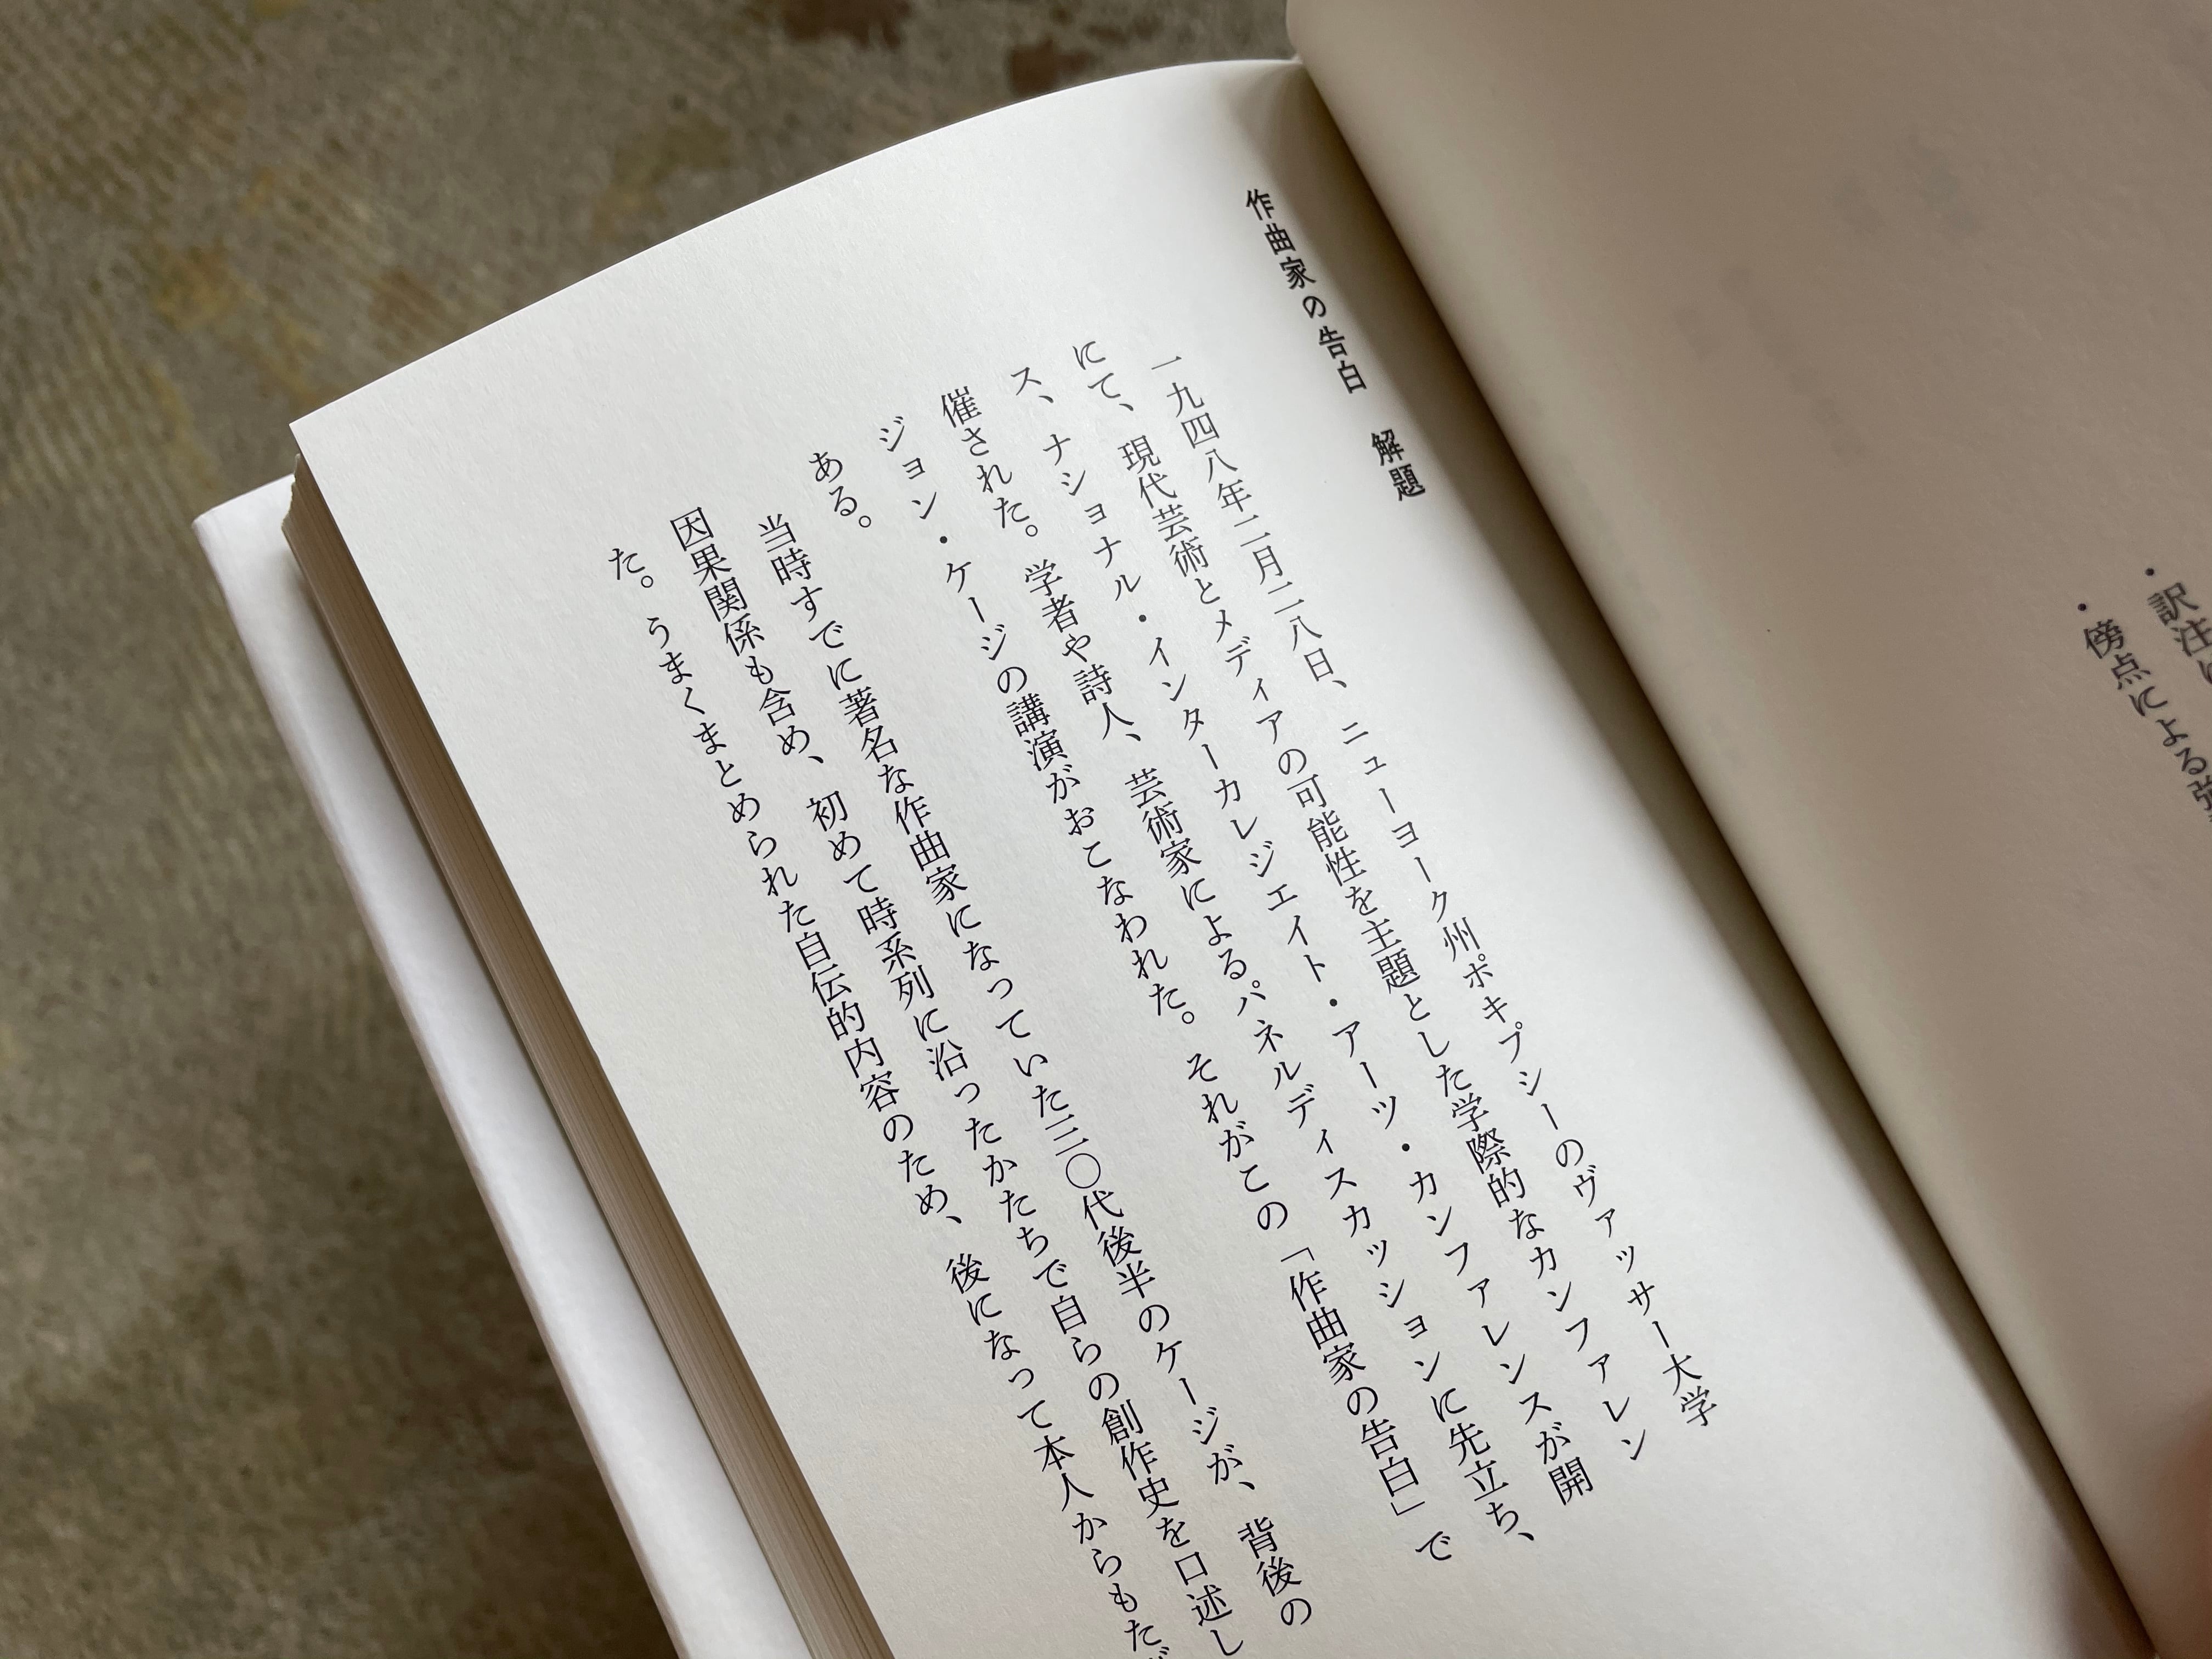 ・訳注
・傍点による
作曲家の告白　解題
一九四八年二月二八日、ニューヨーク州ポキプシーのヴァッサー大学
にて、現代芸術とメディアの可能性を主題とした学際的なカンファレン
ス、ナショナル・インターカレジエイト・アーツ・カンファレンスが開
催された。学者や詩人、芸術家によるパネルディスカッションに先立ち、
ジョン・ケージの講演がおこなわれた。それがこの「作曲家の告白」で
ある。
当時すでに著名な作曲家になっていた三〇代後半のケージが、背後の
因果関係も含め、初めて時系列に沿ったかたちで自らの創作史を口述し
た。うまくまとめられた自伝的内容のため、後になって本人からもた